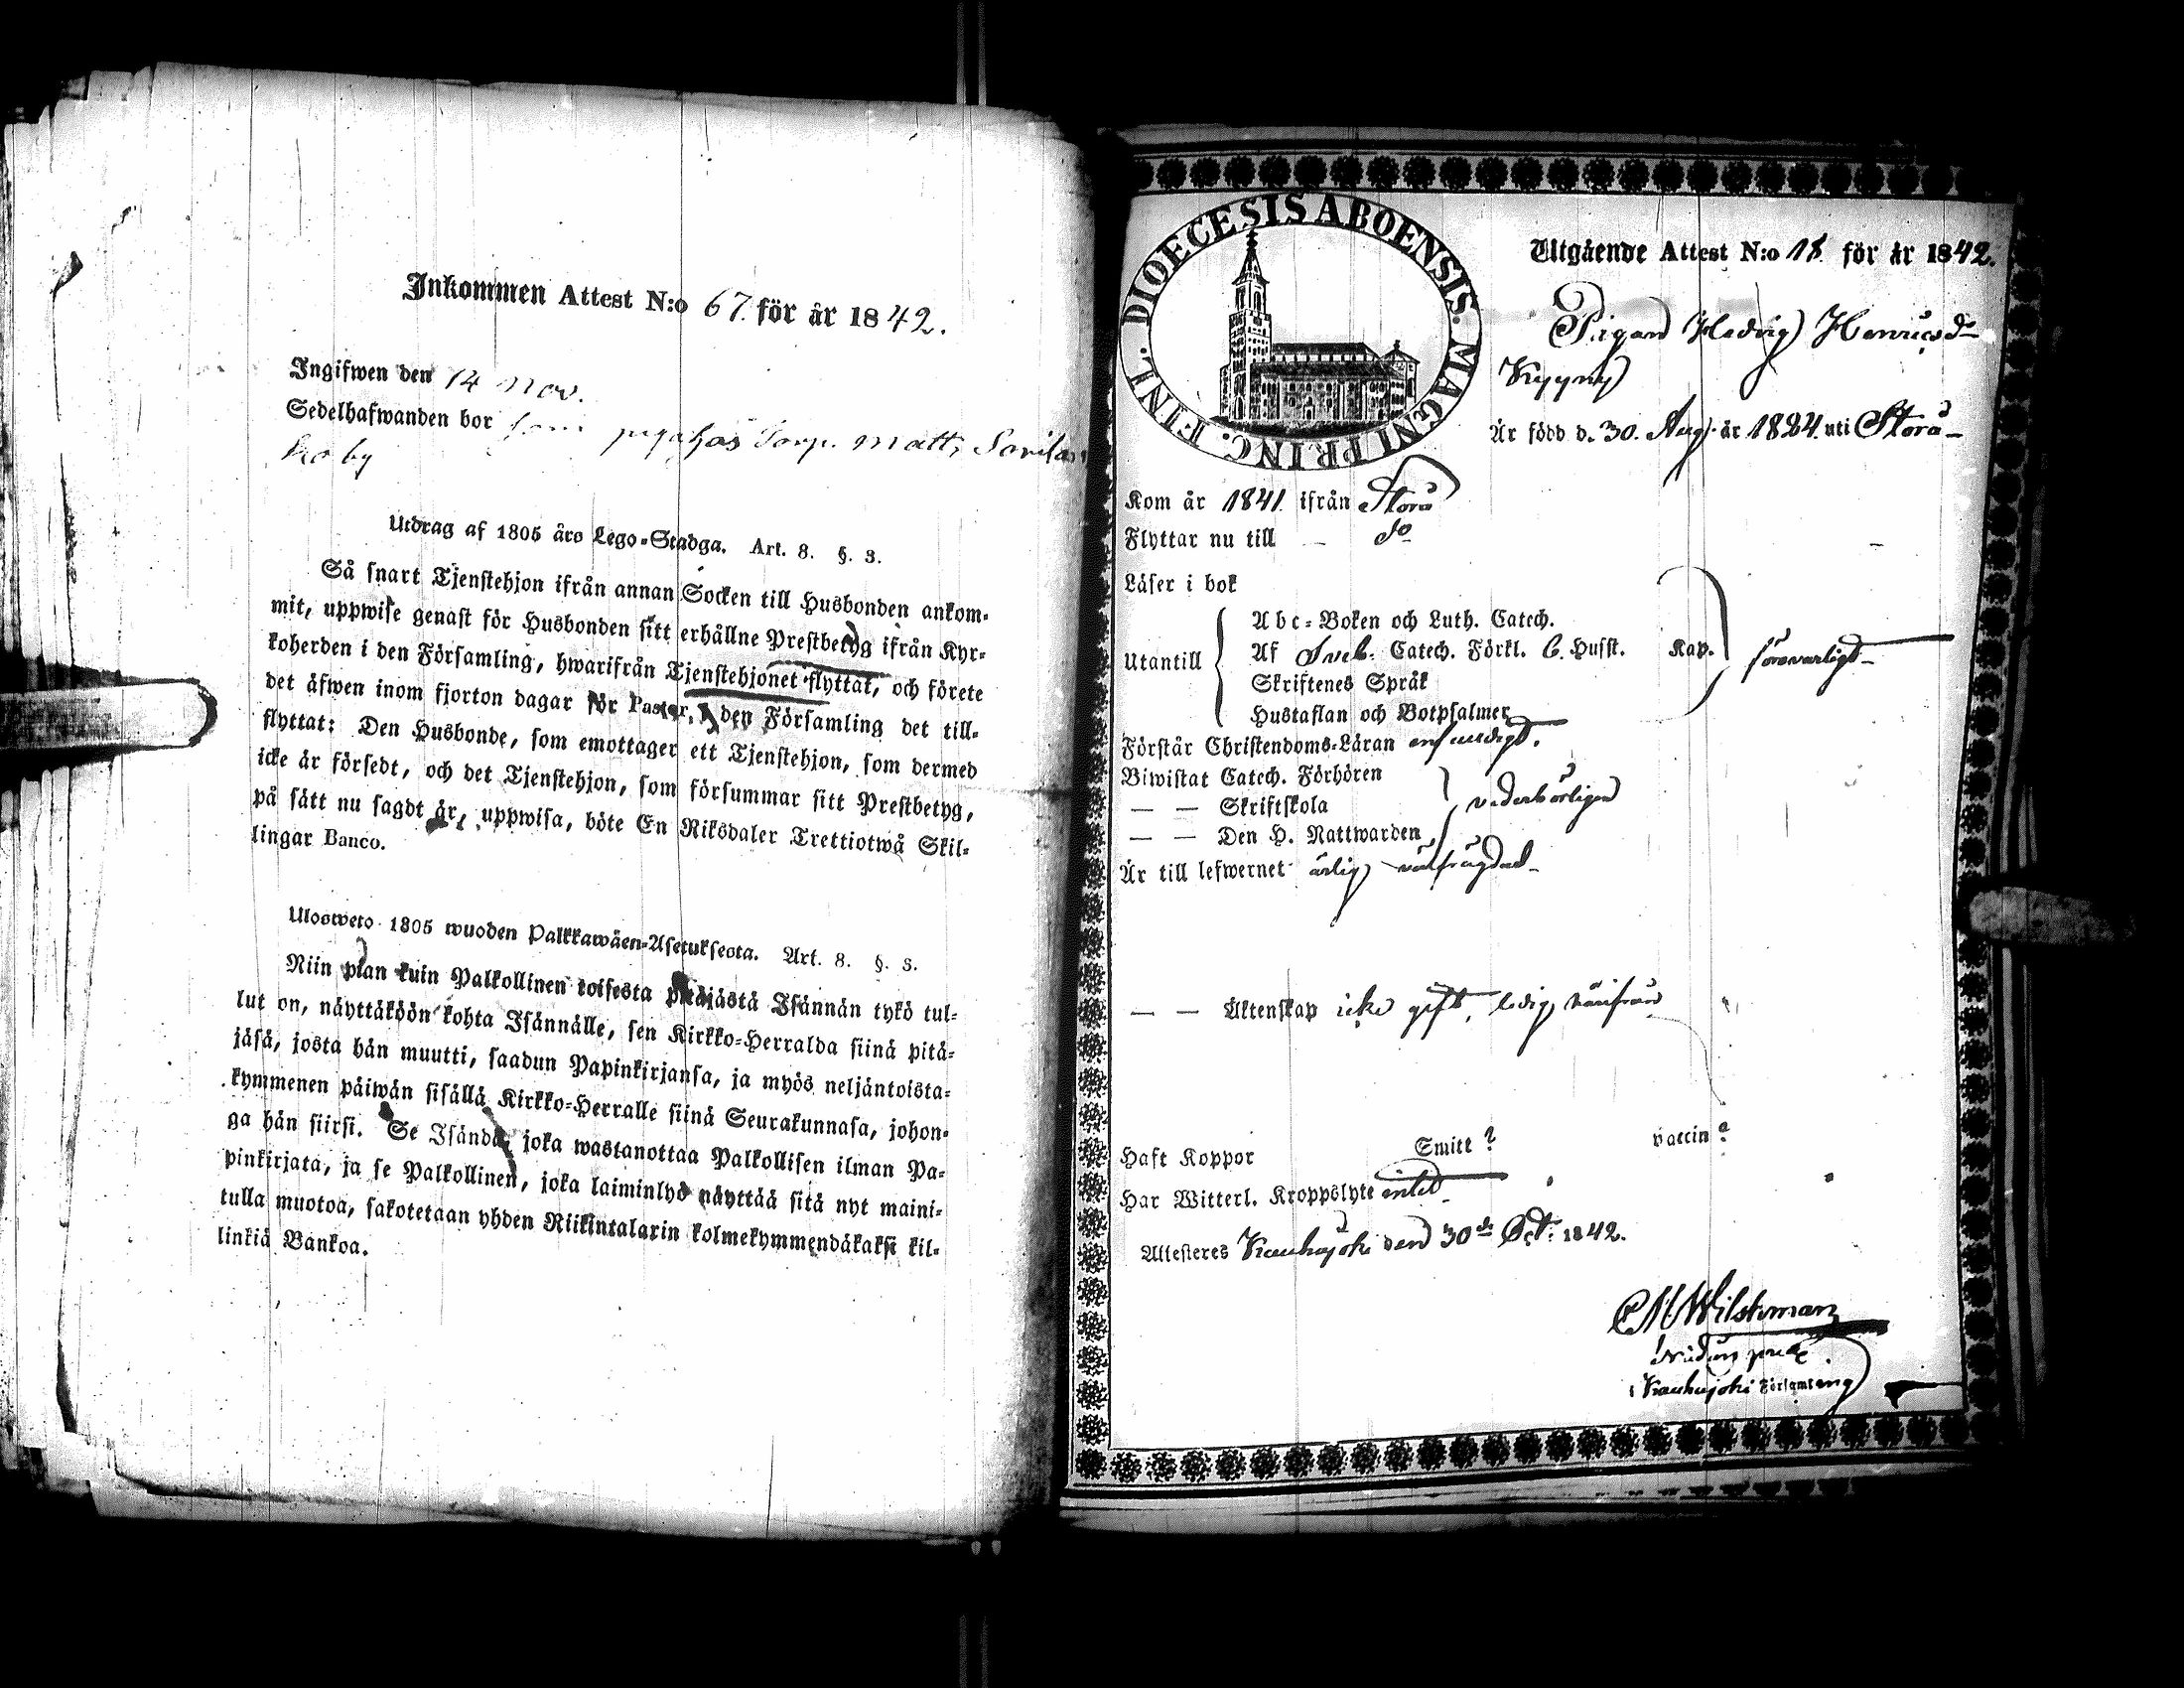 Inkommen Attest N:o 67. för år 1842.
Ingifwen den 14 Nov.
Sedelhafwanden bor som piga hos Torp. Matts
by
Utdrag af 1805 års Lego-Stadga. Art. 8. §. 3.
Så snart Tjenstehjon ifrån annan Socken till Husbonden ankom-
mit, uppwise genast för Husbonden sitt erhållne Prestbetyg ifrån Kyr-
koherden i den Församling, hwarifrån Tjenstehjonet flyttat, och förete
det äfwen inom fjorton dagar för Pastor, i den Församling det till-
flyttat: Den Husbonde, som emottager ett Tjenstehjon, som dermed
icke är försedt, och det Tjenstehjon, som försummar sitt Prestbetyg,
på sätt nu sagdt är, uppwisa, böte En Riksdaler Trettiotwå Skil-
lingar Banco.
Ulosweto 1805 wuoden Palkkawäen-Asetuksesta. Art. 8. §. 3.
Niin pian kuin Palkollinen toisesta pitäjästä Isännän tykö tul-
lut on, näyttäköön kohta Isännälle, sen Kirkko-Herralda siinä pitä-
jäsä, josta hän muutti, saadun Papinkirjansa, ja myös neljäntoista-
kymmenen päiwän sisällä Kirkko-Herralle siinä Seurakunnasa, johon-
ga hän siirsi. Se Isändä, joka wastanottaa Palkollisen ilman Pa-
pinkirjata, ja se Palkollinen, joka laiminlyö näyttää sitä nyt maini-
tulla muotoa, sakotetaan yhden Riikintalarin kolmekymmendäkaksi kil-
linkiä Bankoa.
DIOECESIS ABOENSIS. MAGNI PRINC. FINL.
Utgående Attest N:o 18 för år 1842.
Pigan Hedvig Henricsdr
Kyyny
Är född d. 30. Aug. år 1824. uti Storå
Kom år 1841 ifrån Storå
Flyttar nu till — do
Läser i bok
Utantill
Abc-Boken och Luth. Catech.
Af Sveb. Catech. Förkl. 6. Husst. Kap. försvarligt
Skriftenes Språk
Hustaflan och Botpsalmer
Förstår Christendoms-Läran enfaldigt.
Biwistat Catech. Förhören
— — Skriftskola vederbörligen
— — Den H. Nattwarden
Är till lefwernet ärlig välfrägdad
— — Äktenskap icke gift, ledig härifrån
Haft Koppor Smitt? vaccin?
Har Witterl. Kroppslyte intet
Attesteres Kauhajoki den 30de Oct. 1842.
C M Wilskman
i Kauhajoki Församling